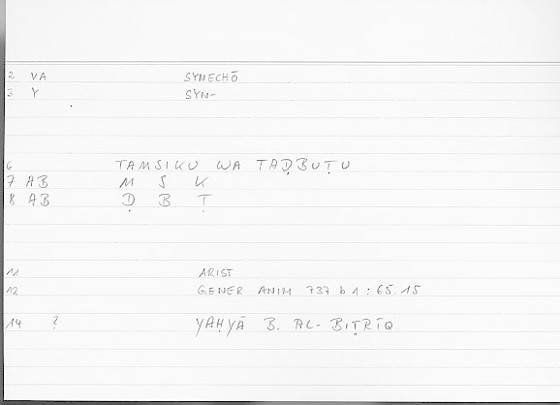 2 VA SYNECHŌ
3 Y SYN-
6 TAMSIKU WA TAḌBUṬU
7 AB M S K
8 AB Ḍ B Ṭ
11 ARIST
12 GENER ANIM 737 b 1 : 65.15
14 ? YAḤYĀ B. AL-BIṬRĪQ